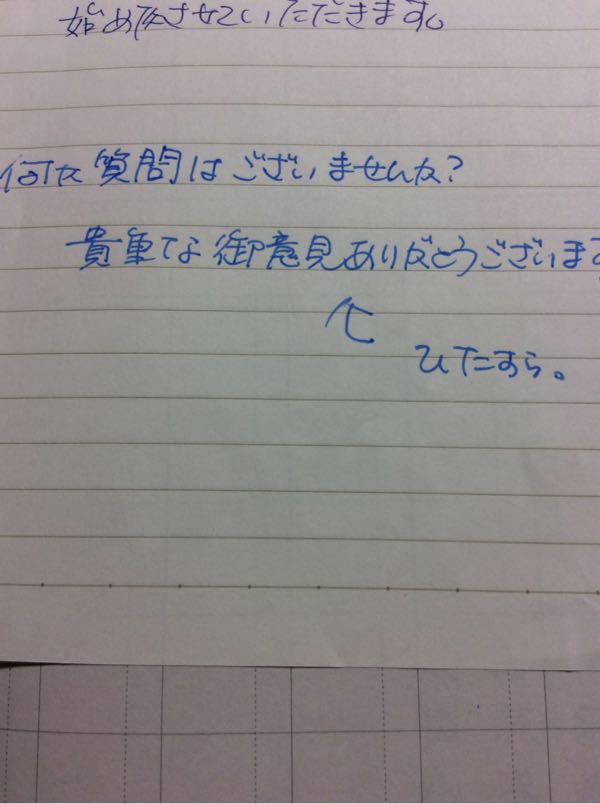 始めさせていただきます。
何か質問はございませんか?
貴重な御意見ありがとうございます
ひたすら。